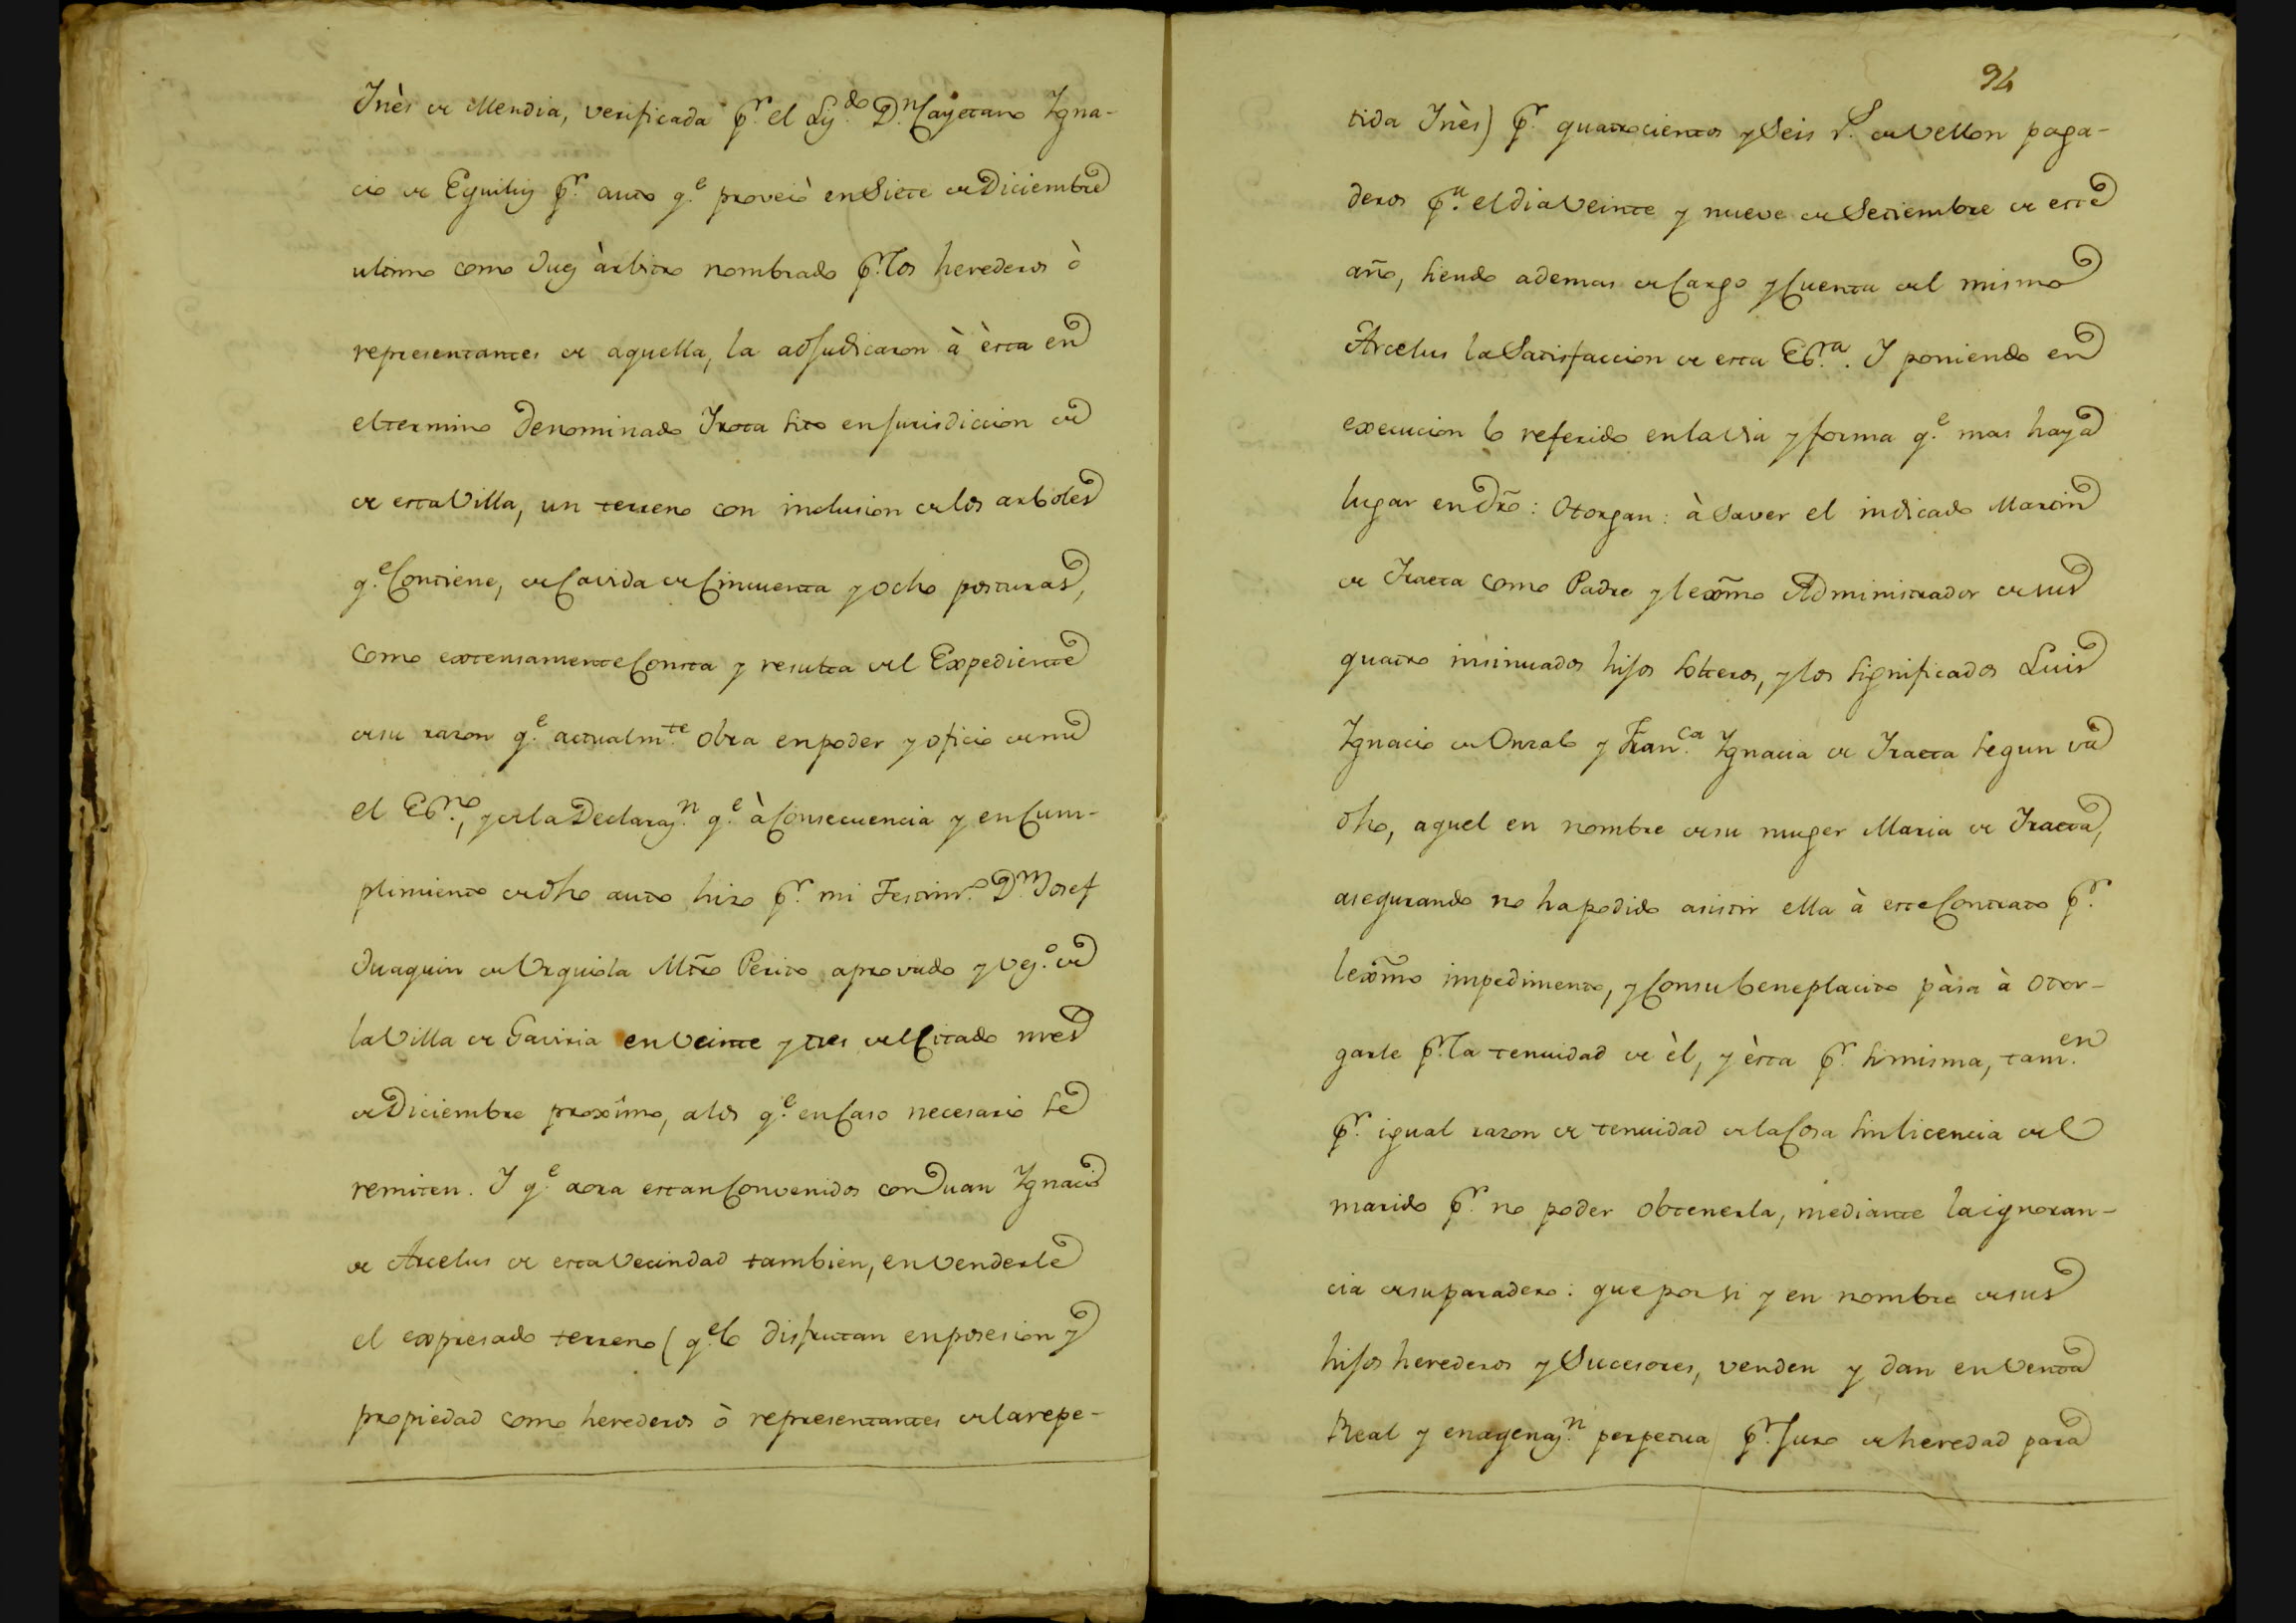 Inès de Mendia, verificada pr. el Lizdo. Dn. Cayetano Igna-
cio de Eguiliz pr. auto qe. proveiò en Siete de Diciembre
ultimo como Juez àrbitro nombrado pr. los herederos ò
representantes de aquella, la adjudicaron à èsta en
el termino denominado Irota sito en jurisdiccion de
de esta Villa, un terreno con inclusion de los arboles
qe. Contiene, de Cavida de Cincuenta y ocho posturas,
como extensamente Consta y resulta del Expediente
de su razon qe. actualmte. obra en poder y oficio de mi
el Esno., y de la Declarazn. qe. à Consecuencia y en Cum-
plimiento de dho auto hizo pr. mi Testimo. Dn. Josef
Juaquin de Urquiola Mtro Perito aprovado y vezo. de
la Villa de Gaviria en veinte y tres del Citado mes
de Diciembre proximo, a los qe. en Caso necesario se
remiten. I qe. aora estan Convenidos con Juan Ignacio
de Arcelus de esta Vecindad tambien, en venderle
el expresado terreno (qe. lo disfrutan en posesion y
propiedad como herederos ò representantes de la repe-
94
tida Inès) pr. quatrocientos y Seis rs. de Vellon paga-
deros pa. el dia Veinte y nueve de Setiembre de este
año, siendo ademas de Cargo y Cuenta del mismo
Arcelus la Satisfaccion de esta Esra.. I poniendo en
execucion lo referido en la via y forma qe. mas haya
lugar en dro: Otorgan: à Saver el indicado Martin
de Iraeta como Padre y lexmo Administrador de sus
quatro insinuados hijos solteros, y los significados Luis
Ignacio de Onzalo y Franca. Ignacia de Iraeta segun va
dho, aquel en nombre de su muger Maria de Iraeta,
asegurando no ha podido asistir ella à este Contrato pr.
lexmo impedimento, y Con su beneplacito pàsa à otor-
garle pr. la tenuidad de èl, y èsta pr. si misma, tamen.
pr. igual razon de tenuidad de la Cosa sin licencia del
marido pr. no poder obtenerla, mediante la ignoran-
cia de su paradero: que por si y en nombre de sus
hijos herederos y Sucesores, venden y dan en Venta
Real y enagenazn. perpetua pr. Juro de heredad para